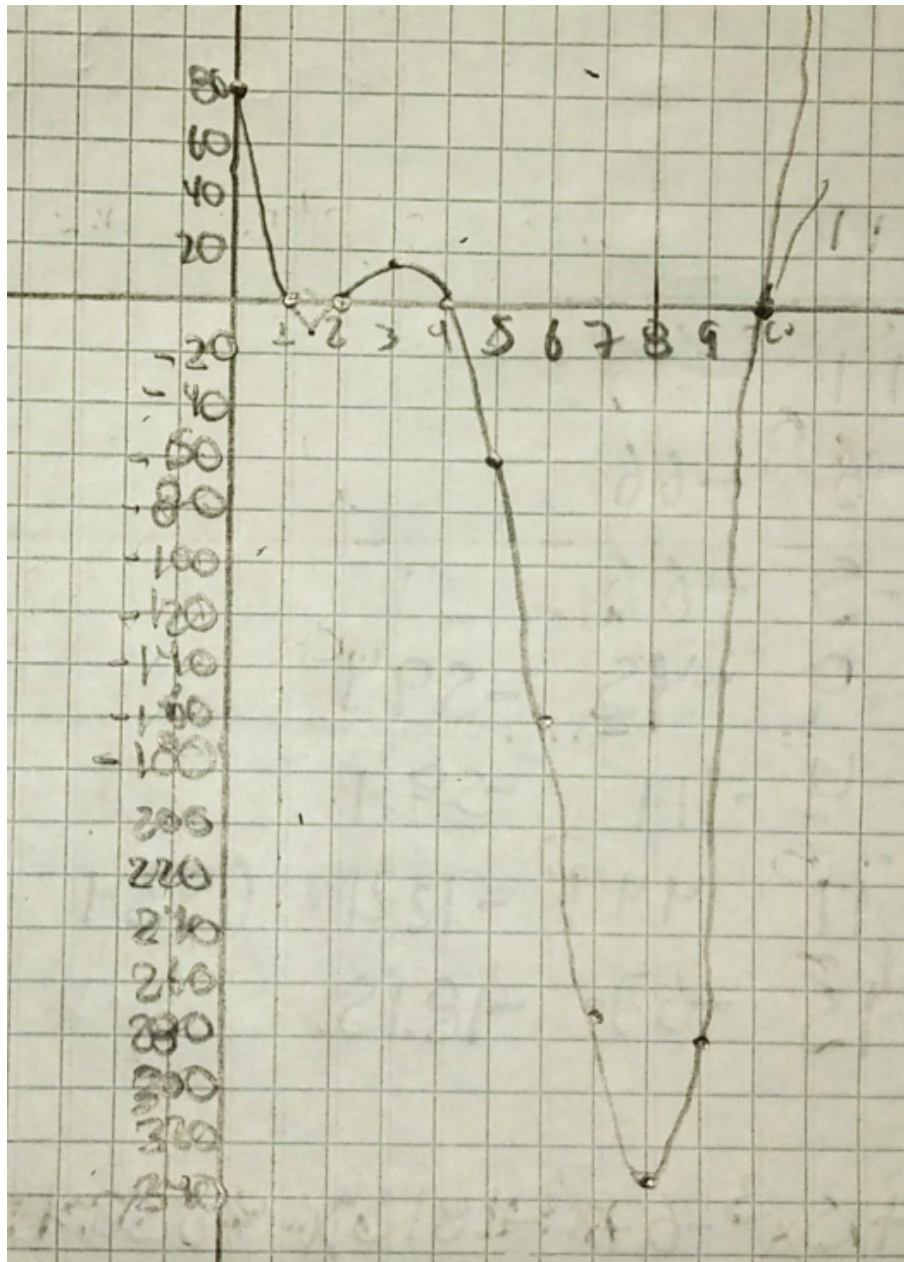 80
60
40
20
1 2 3 4 5 6 7 8 9 10
11
-20
-40
-60
-80
-100
-120
-140
-160
-180
200
220
240
260
280
300
320
340